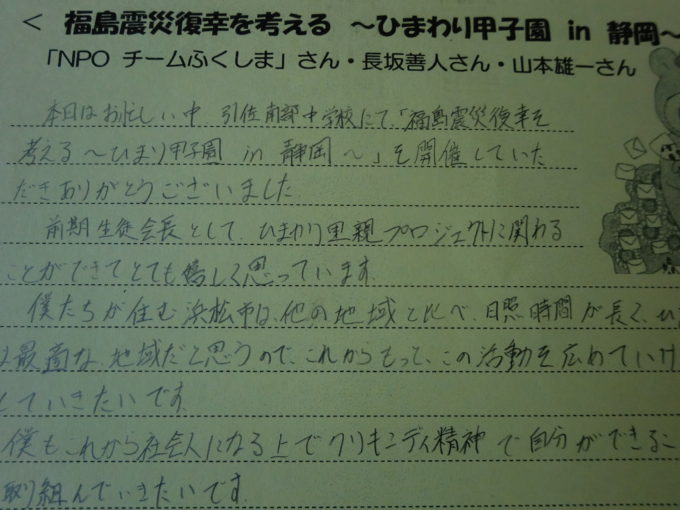 < 福島震災復幸を考える ~ひまわり甲子園 in 静岡~
「NPO チームふくしま」さん・長坂善人さん・山本雄一さん
本日はお忙しい中 引佐南部中学校にて、「福島震災復幸を
考える ～ひまり甲子園 in 静岡 ～」を開催していた
だきありがとうございました
前期生徒会長として、ひまわり里親プロジェクトに関わる
ことができてとても嬉しく思っています.
僕たちが住む浜松市は、他の地域と比べ、日照時間が長く、ひ
最適な地域だと思うので、これからもって、この活動を広めていけ
していきたいです.
僕もこれから社会人になる上でクリキンディ精神で自分ができるこ
取り組んでいきたいです.